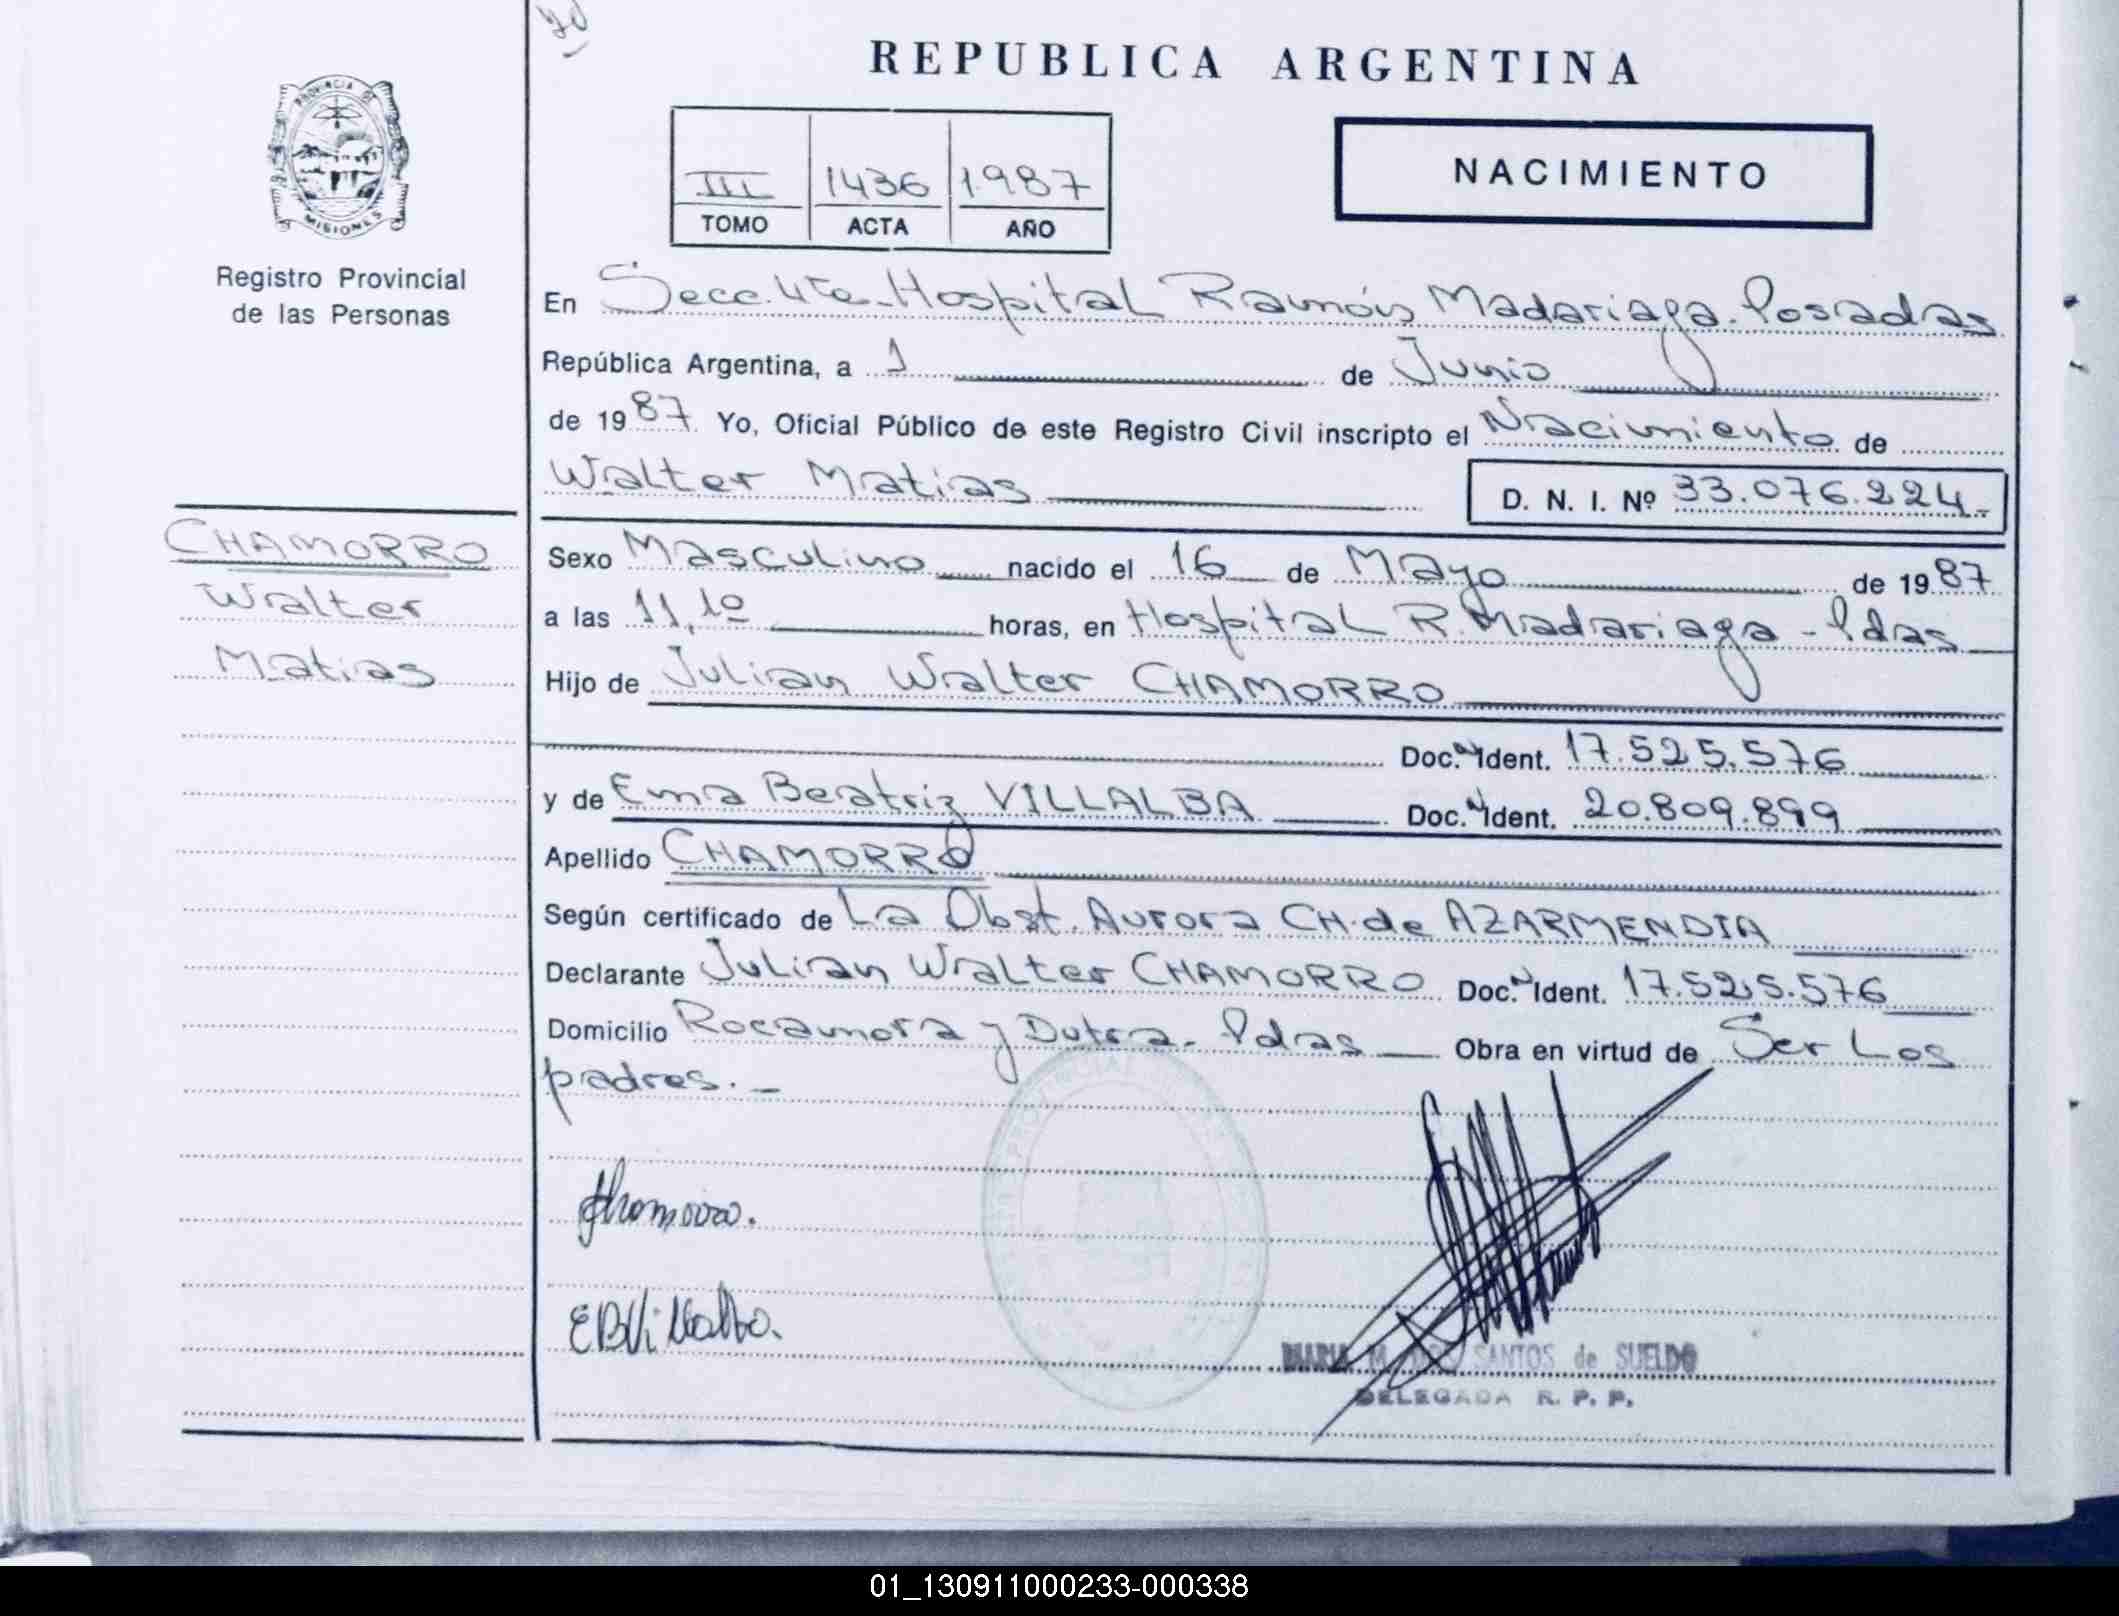 REPUBLICA ARGENTINA
PROVINCIA DE
MISIONES
Registro Provincial
de las Personas
III 1436 1987
TOMO ACTA AÑO
NACIMIENTO
En Secc. 4ta. Hospital Ramón Madariaga. Posadas
República Argentina, a 1 de Junio
de 1987 Yo, Oficial Público de este Registro Civil inscripto el Nacimiento de
Walter Matias D. N. I. Nº 33.076.224.-
CHAMORRO
Walter
Matias
Sexo Masculino nacido el 16 de Mayo de 1987
a las 11,10 horas, en Hospital R. Madariaga - Pdas
Hijo de Julian Walter CHAMORRO
Doc. N Ident. 17.525.576
y de Ema Beatriz VILLALBA Doc. N Ident. 20.809.899
Apellido CHAMORRO
Según certificado de La Obst. Aurora CH. de AZARMENDIA
Declarante Julian Walter CHAMORRO Doc. N Ident. 17.525.576
Domicilio Rocamora y Dutra. Pdas Obra en virtud de Ser Los
padres. -
Chamorro.
EBVillalba.
MARIA M. DOS SANTOS de SUELDO
DELEGADA R. P. P.
01_130911000233-000338